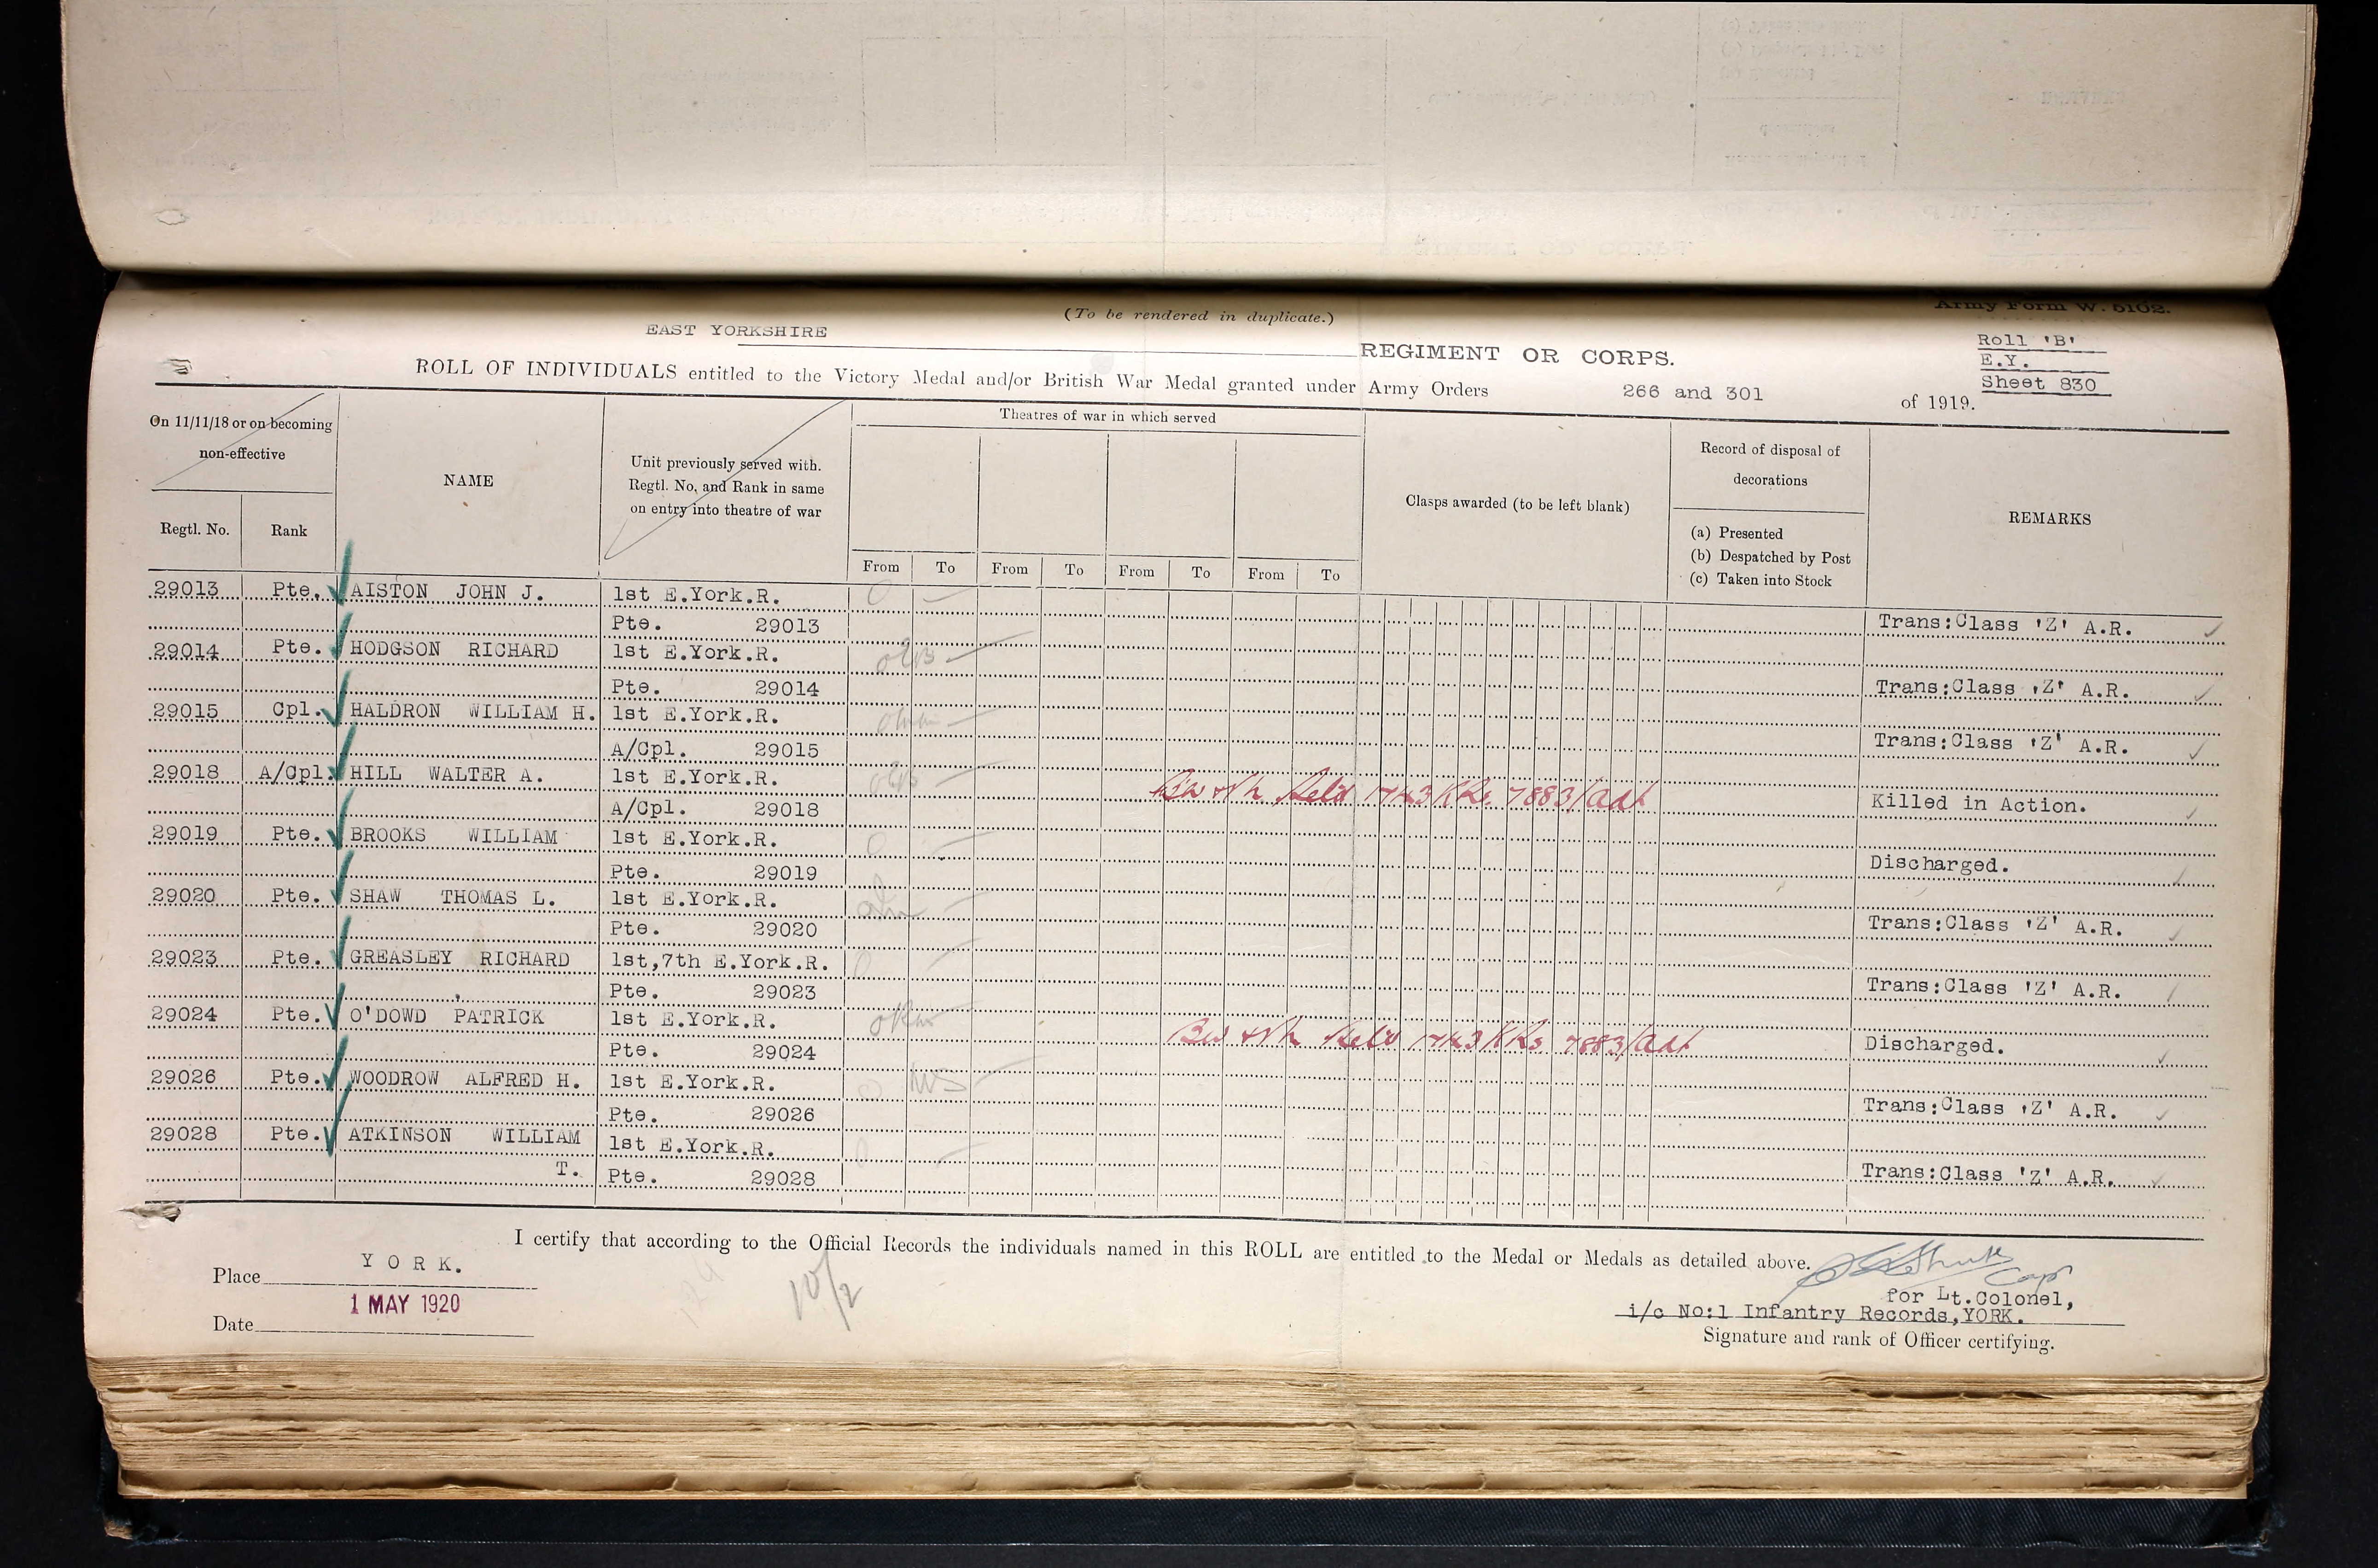 (To be rendered in duplicate.)
Army Form W. 5102.
EAST YORKSHIRE
REGIMENT OR CORPS.
Roll 'B'
E.Y.
Sheet 830
ROLL OF INDIVIDUALS entitled to the Victory Medal and/or British War Medal granted under Army Orders 266 and 301 of 1919.
On 11/11/18 or on becoming non-effective
Regtl. No.
Rank
NAME
Unit previously served with.
Regtl. No, and Rank in same
on entry into theatre of war
Theatres of war in which served
From To From To From To From To
Clasps awarded (to be left blank)
Record of disposal of
decorations
(a) Presented
(b) Despatched by Post
(c) Taken into Stock
REMARKS
29013 Pte. AISTON JOHN J. 1st E.York.R.
Pte. 29013 Trans:Class 'Z' A.R.
29014 Pte. HODGSON RICHARD 1st E.York.R.
Pte. 29014 Trans:Class 'Z' A.R.
29015 Cpl. HALDRON WILLIAM H. 1st E.York.R.
A/Cpl. 29015 Trans:Class 'Z' A.R.
29018 A/Cpl. HILL WALTER A. 1st E.York.R.
A/Cpl. 29018 Killed in Action.
29019 Pte. BROOKS WILLIAM 1st E.York.R.
Pte. 29019 Discharged.
29020 Pte. SHAW THOMAS L. 1st E.York.R.
Pte. 29020 Trans:Class 'Z' A.R.
29023 Pte. GREASLEY RICHARD 1st,7th E.York.R.
Pte. 29023 Trans:Class 'Z' A.R.
29024 Pte. O'DOWD PATRICK 1st E.York.R.
Pte. 29024 Discharged.
29026 Pte. WOODROW ALFRED H. 1st E.York.R.
Pte. 29026 Trans:Class 'Z' A.R.
29028 Pte. ATKINSON WILLIAM 1st E.York.R.
T. Pte. 29028 Trans:Class 'Z' A.R.
I certify that according to the Official Records the individuals named in this ROLL are entitled to the Medal or Medals as detailed above.
Place YORK.
Date 1 MAY 1920
10/2
Capt
for Lt.Colonel,
i/c No:1 Infantry Records,YORK.
Signature and rank of Officer certifying.